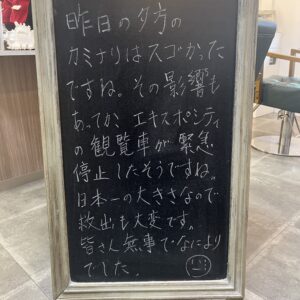 昨日の夕方の
カミナリはスゴかった
ですね。その影響も
あってか、エキスポシティ
の観覧車が緊急
停止したそうですね。
日本一の大きさなので
救出も大変です。
皆さん無事でなにより
でした。